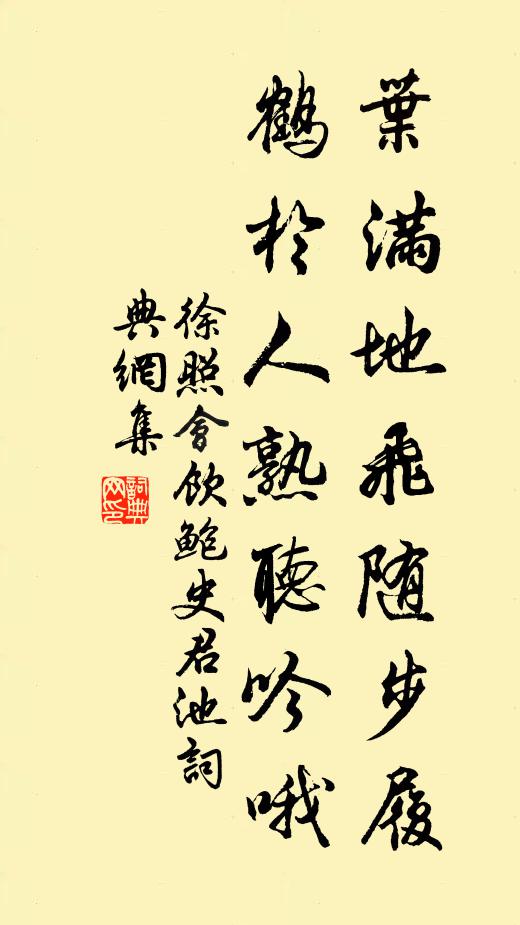 葉滿地飛随步履
鶴於人熟聽吟哦
徐照會飲鮑史君池詞
典網集
詞典网印